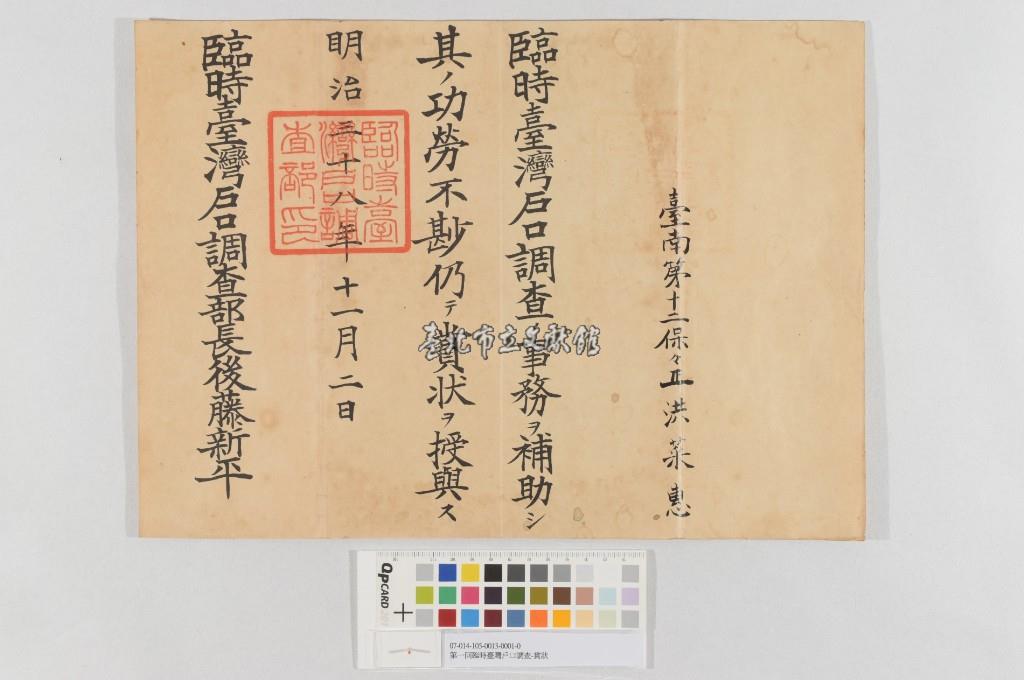 臺南第十二保々正洪菜惠
臨時臺灣戶口調查事務ヲ補助シ
其ノ功勞不尠仍テ賞狀ヲ授與ス
明治三十八年十一月二日
臨時臺灣戶口調查部長後藤新平
臨時臺
灣戶口調
查部印
臺北市立文獻館
QPCARD 201
07-014-105-0013-0001-0
第一回臨時臺灣戶口調查-賞狀